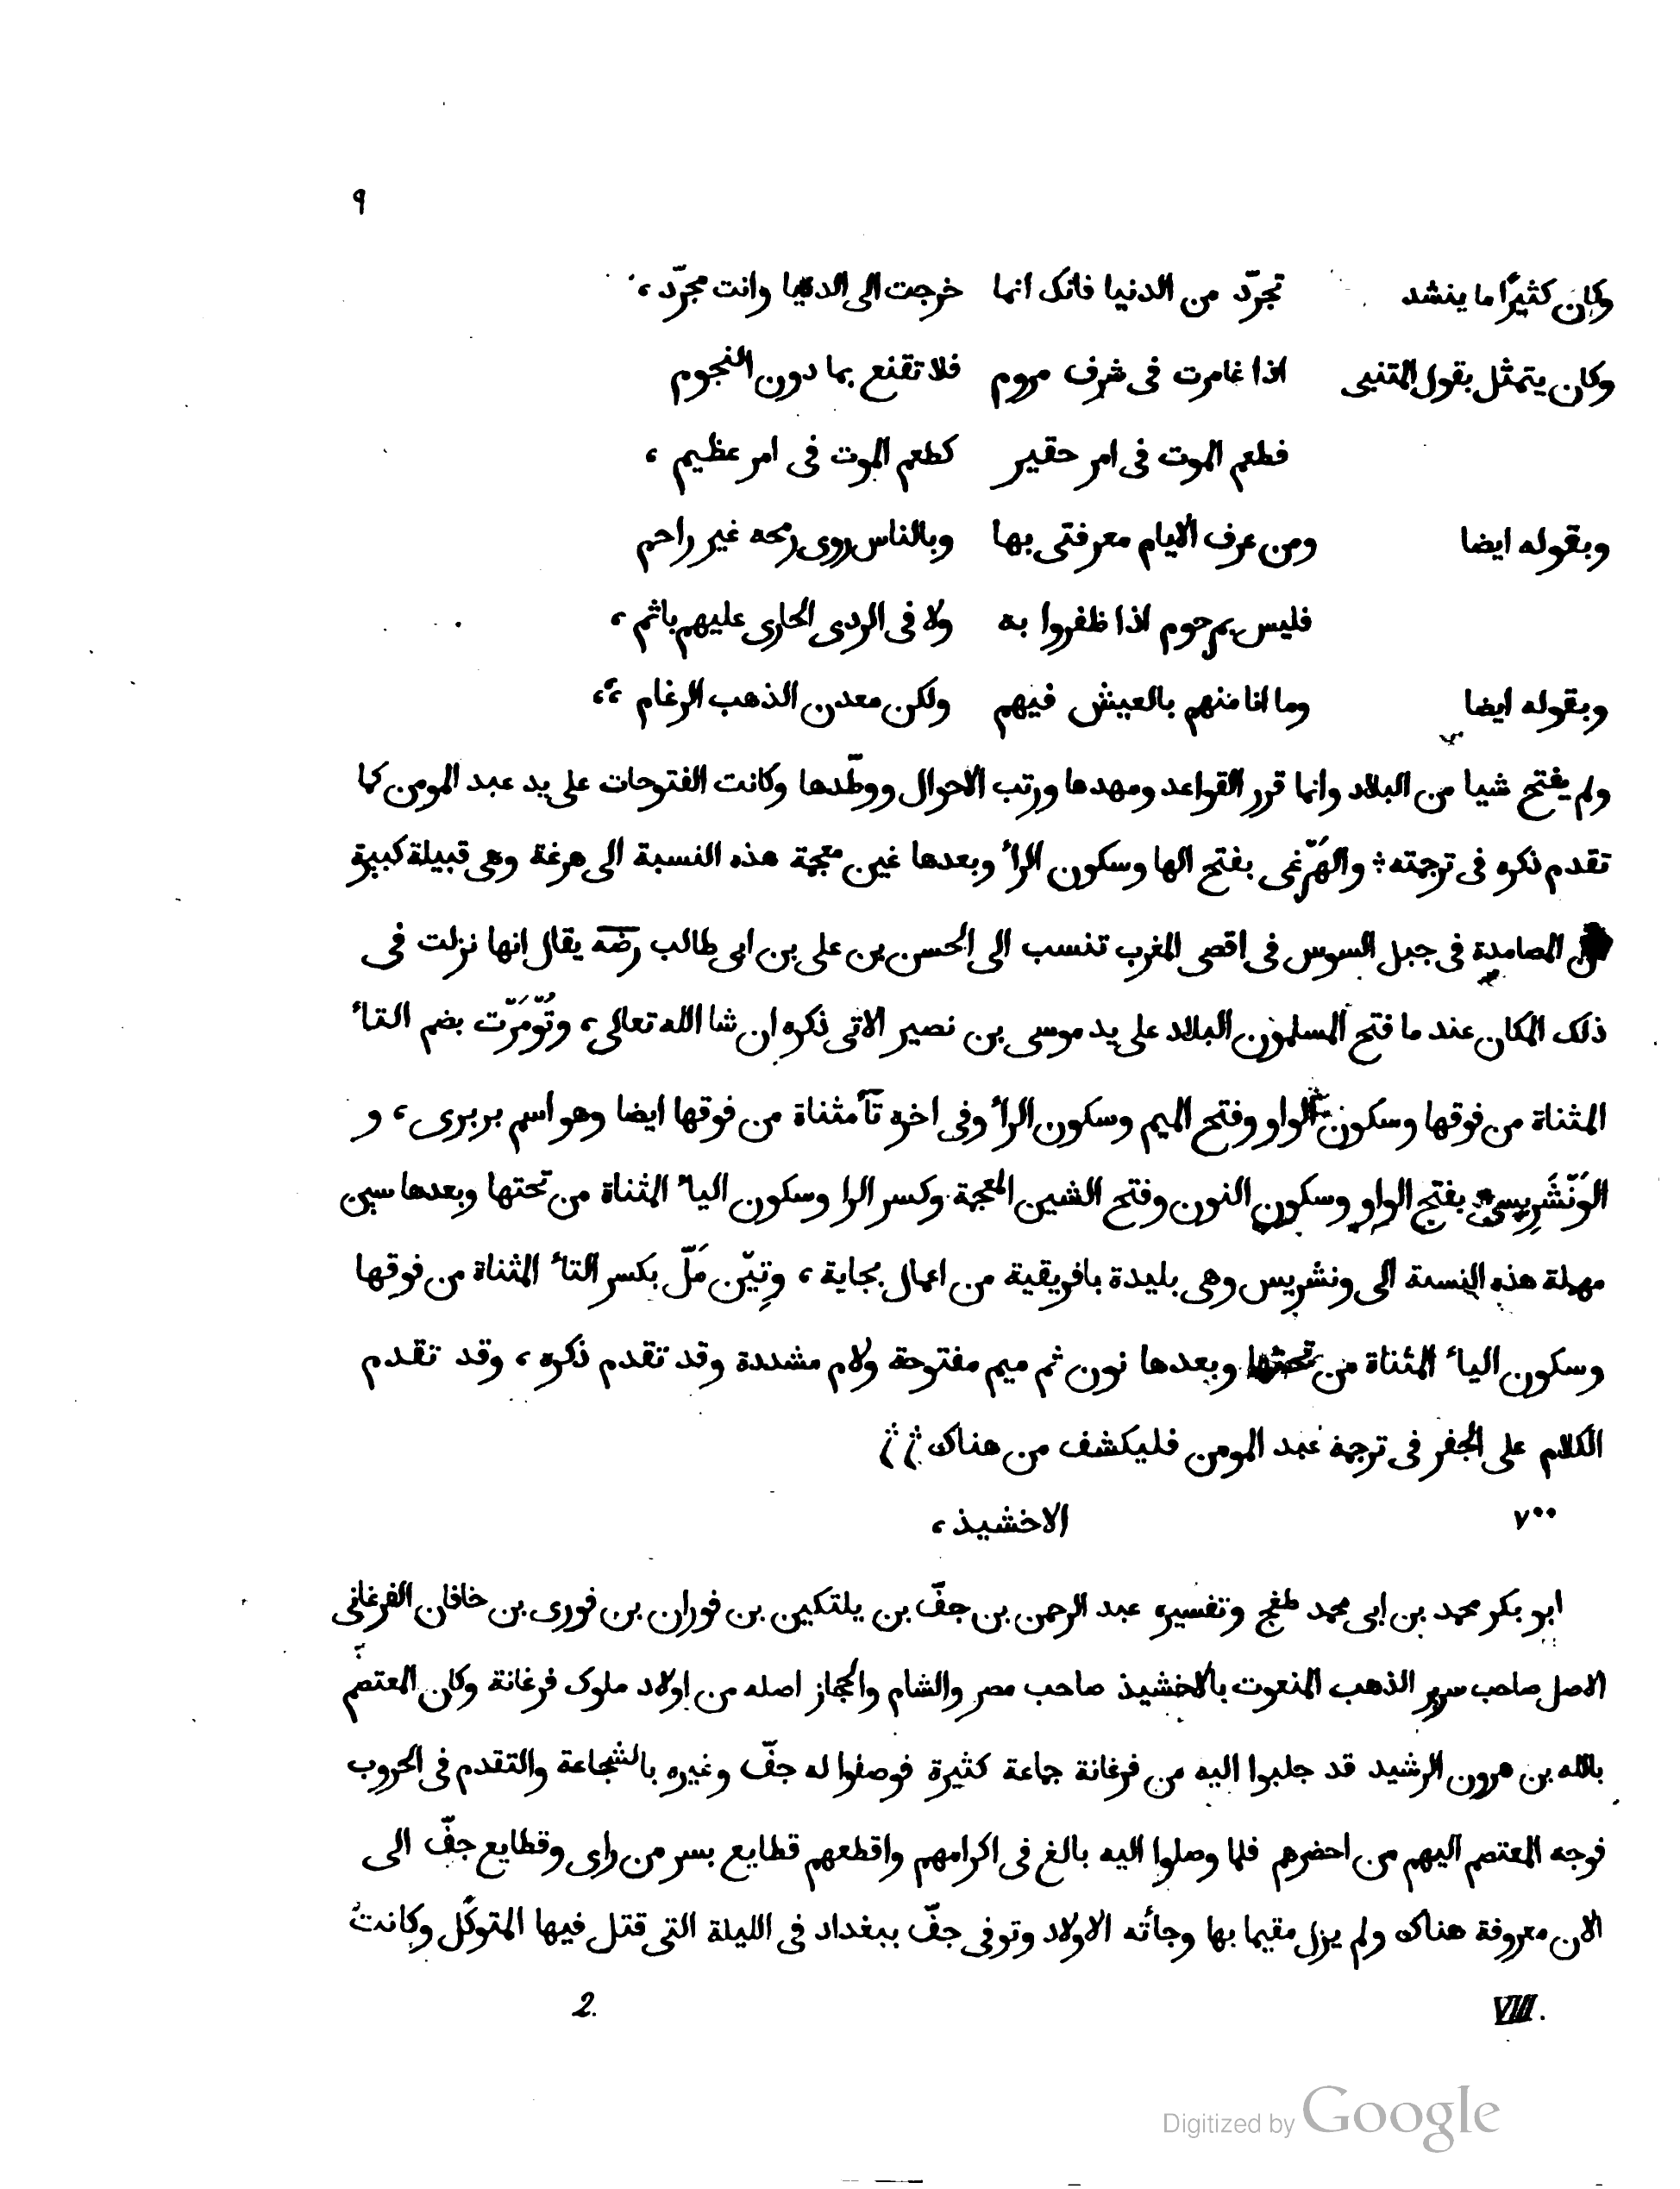 ٩
وكان كثيرًا ما ينشد تجرّد من الدنيا فانك انما خرجت الى الدنيا وانت مجرّد،
وكان يتمثل بقول المتنبى اذا غامرت فى شرف مروم فلا تقنع بما دون النجوم
فطعم الموت فى امر حقير كطعم الموت فى امر عظيم،
وبقوله ايضا ومن عرف الايام معرفتى بها وبالناس روى رمحه غير راحم
فليس بمرحوم اذا ظفروا به ولا فى الردى الجارى عليهم باثم،
وبقوله ايضا وما انا منهم بالعيش فيهم ولكن معدن الذهب الرغام،،
ولم يفتح شيا من البلاد وانما قرر القواعد ومهدها ورتب الاحوال ووطّدها وكانت الفتوحات على يد عبد المومن كما
تقدم ذكره فى ترجمته؛ والهَرْغى بفتح الها وسكون الرأ وبعدها غين معجمة هذه النسبة الى هرغة وهى قبيلة كبيرة
من المصامدة فى جبل السوس فى اقصى المغرب تنسب الى الحسن بن على بن ابى طالب رضه يقال انها نزلت فى
ذلك المكان عند ما فتح المسلمون البلاد على يد موسى بن نصير الاتى ذكره ان شا الله تعالى، وتُوْمَرْت بضم التأ
المثناة من فوقها وسكون الواو وفتح الميم وسكون الرأ وفى اخره تآ مثناة من فوقها ايضا وهو اسم بربرى، و
الوَنْشَرِيسى بفتح الواو وسكون النون وفتح الشين المعجمة وكسر الرا وسكون اليأ المثناة من تحتها وبعدها سين
مهملة هذه النسبة الى ونشريس وهى بليدة بافريقية من اعمال بجاية، وتِيْن مَلّ بكسر التأ المثناة من فوقها
وسكون اليأ المثناة من تحتها وبعدها نون ثم ميم مفتوحة ولام مشددة وقد تقدم ذكره، وقد تقدم
الكلام على الجفر فى ترجمة عبد المومن فليكشف من هناك
٧٠٠ الاخشيذ،
ابو بكر محمد بن ابى محمد طغج وتفسيره عبد الرحمن بن جفّ بن يلتكين بن فوران بن فورى بن خاقان الفرغانى
الاصل صاحب سرير الذهب المنعوت بالاخشيذ صاحب مصر والشام والحجاز اصله من اولاد ملوك فرغانة وكان المعتصم
بالله بن هرون الرشيد قد جلبوا اليه من فرغانة جماعة كثيرة فوصفوا له جفّ وغيره بالشجاعة والتقدم فى الحروب
فوجه المعتصم اليهم من احضرهم فلما وصلوا اليه بالغ فى اكرامهم واقطعهم قطايع بسر من راى وقطايع جفّ الى
الان معروفة هناك ولم يزل مقيما بها وجأته الاولاد وتوفى جفّ ببغداد فى الليلة التى قتل فيها المتوكّل وكانت
VIII. 2.
Digitized by Google